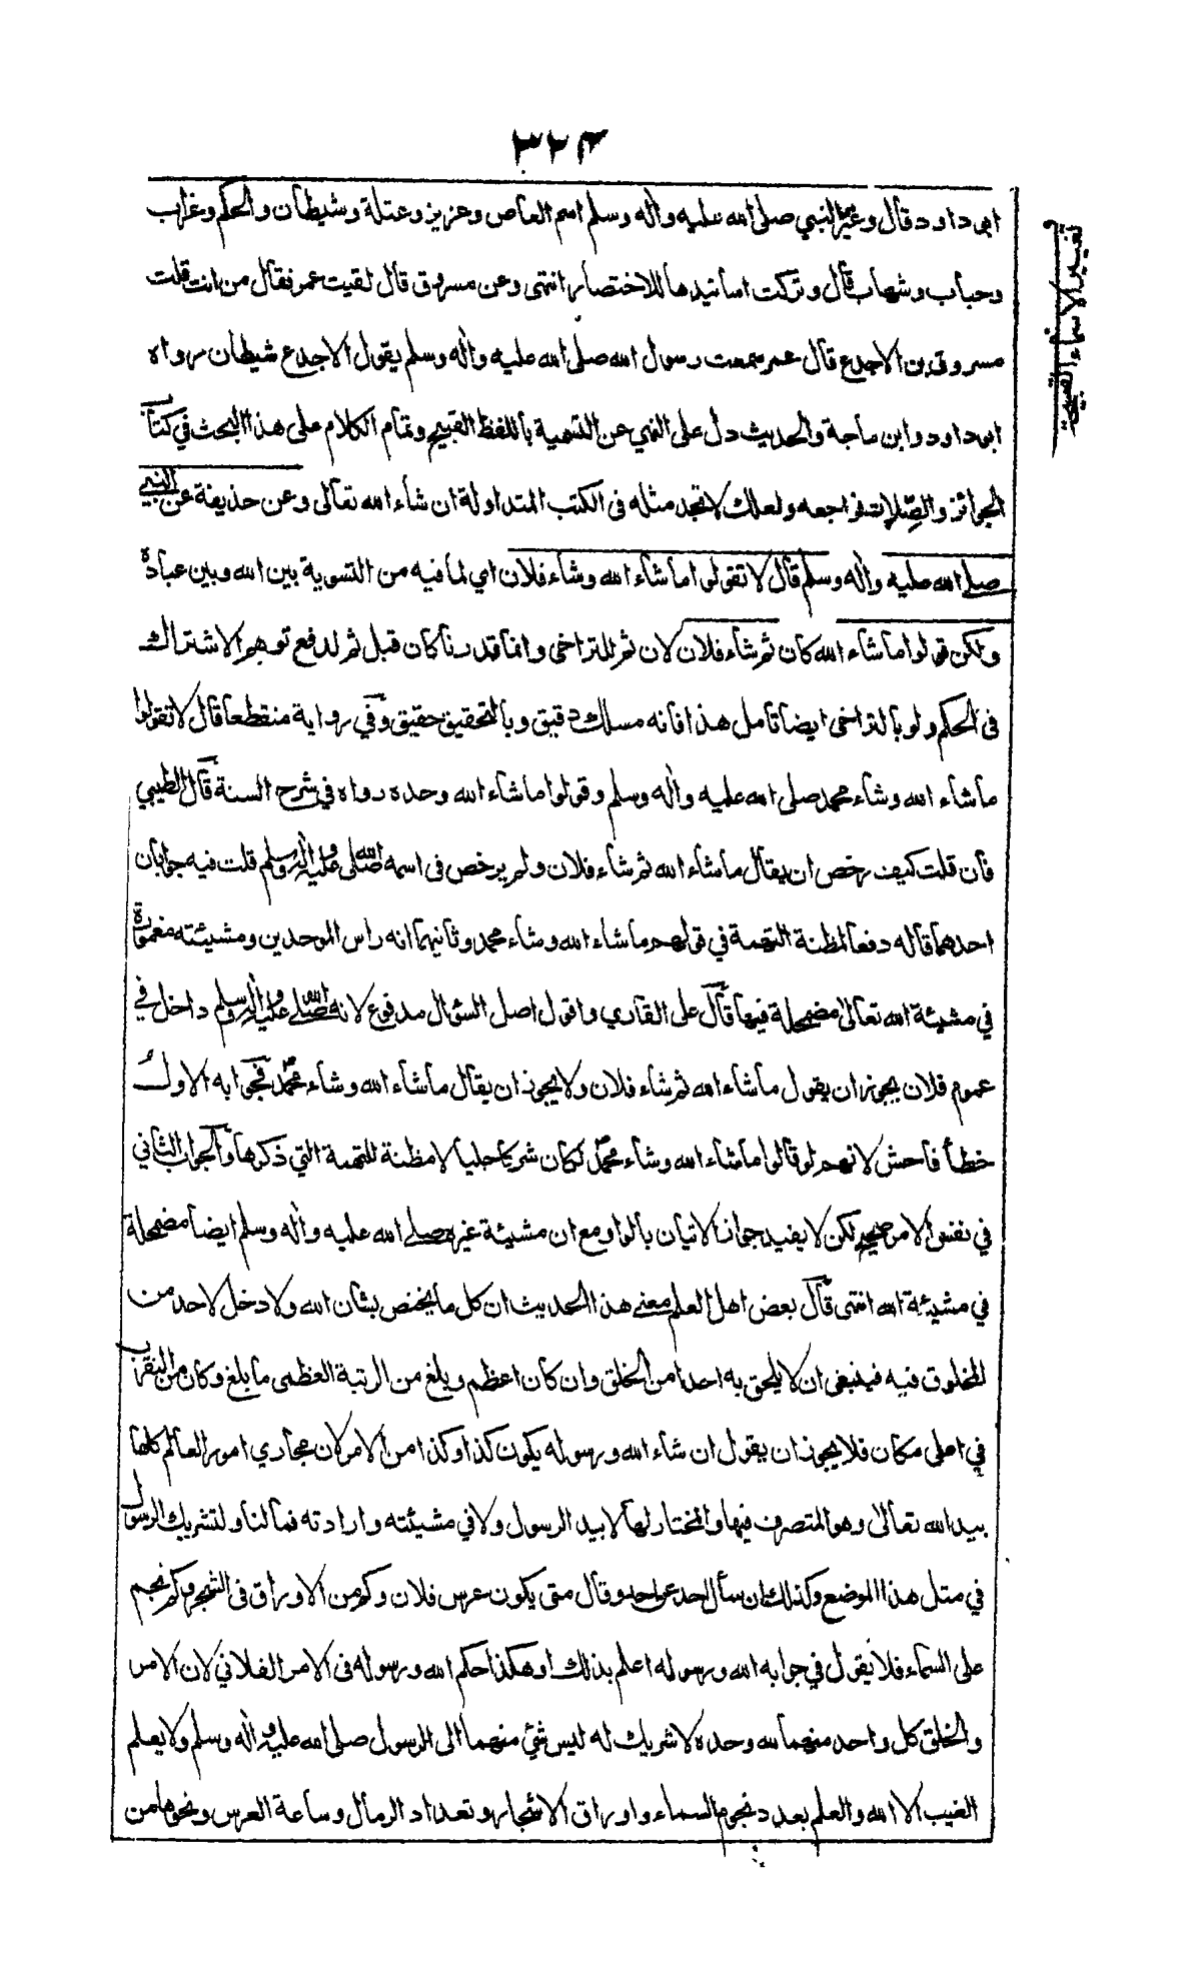 ٣٢٤
ابی داود قال وغیر النبي صلی الله علیه واٰله وسلم اسم العاص وعزیز وعتلة وشیطان والحکم وغراب
وحباب وشهاب قال وترکت اسانیدها للاختصار انتهی وعن مسروق قال لقیت عمر فقال من انت قلت
مسروق بن الاجدع قال عمر سمعت رسول الله صلی الله علیه واٰله وسلم یقول الاجدع شیطان رواه
ابو داود وابن ماجة والحدیث دل علی النهي عن التسمیة باللفظ القبیح وتمام الکلام علی هذا البحث في کتاب
الجوائز والصِّلات فراجعه ولعلك لا تجد مثله فی الکتب المتداولة ان شاء الله تعالی وعن حذیفة عن النبي
صلی الله علیه واٰله وسلم قال لا تقولوا ما شاء الله وشاء فلان اي لما فیه من التسویة بین الله وبین عباده
ولکن قولوا ما شاء الله کان ثم شاء فلان لان ثم للتراخی وانما قدرنا کان قبل ثم لدفع توهم الاشتراك
فی الحکم ولو بالتراخی ایضا تامل هذا فانه مسلك دقیق وبالتحقیق حقیق وفي روایة منقطعا قال لا تقولوا
ما شاء الله وشاء محمد صلی الله علیه واٰله وسلم وقولوا ما شاء الله وحده رواه في شرح السنة قال الطیبي
فان قلت کیف رخص ان یقال ما شاء الله ثم شاء فلان ولم یرخص فی اسمه صلی الله علیه واٰله وسلم قلت فیه جوابان
احدهما قاله دفعا لمظنة التهمة في قولهم ما شاء الله وشاء محمد وثانیهما انه راس الموحدین ومشیئته مغمورة
في مشیئة الله تعالی مضمحلة فیها قال علی القاري واقول اصل السؤال مدفوع لانه صلی الله علیه واٰله وسلم داخل في
عموم فلان یجوز ان یقول ما شاء الله ثم شاء فلان ولا یجوز ان یقال ما شاء الله وشاء محمّد فجوابه الاول
خطأ فاحش لانهم لو قالوا ما شاء الله وشاء محمّد لکان شرکا جلیا لا مظنة للتهمة التي ذکرها والجواب الثاني
في نفس الامر صحیح لکن لا یفید جواز الاتیان بالواو مع ان مشیئة غیره صلی الله علیه واٰله وسلم ایضا مضمحلة
في مشیئة الله انتهی قال بعض اهل العلم معنی هذا الحدیث ان کل ما یختص بشان الله ولا دخل لاحد من
المخلوق فیه فینبغي ان لا یلحق به احدا من الخلق وان کان اعظم وبلغ من الرتبة العظمی ما بلغ وکان من التقرب
في اعلی مکان فلا یجوز ان یقول ان شاء الله ورسوله یکون کذا وکذا من الامر لان مجاري امور العالم کلها
بید الله تعالی وهو المتصرف فیها والمختار لها لا بید الرسول ولا في مشیئته وارادته فما لنا ولتشریك الرسول
في مثل هذا الموضع وکذلك ان سأل احد عن احد وقال متی یکون عرس فلان وکم من الاوراق فی الشجر وکم نجم
علی السماء فلا یقول في جوابه الله ورسوله اعلم بذلك او هکذا حکم الله ورسوله فی الامر الفلاني لان الامر
والخلق کل واحد منهما لله وحده لا شریك له لیس شئ منهما الی الرسول صلی الله علیه واٰله وسلم ولا یعلم
الغیب الا الله والعلم بعدد نجوم السماء واوراق الاشجار وتعداد الرمال وساعة العرس ونحوها من
تغییر الاسماء القبیحة